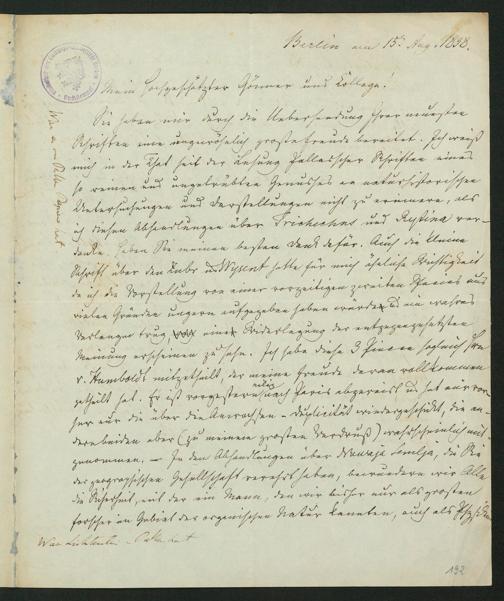 Berlin am 15t Aug. 1838.
Mein hochgeschätzter Gönner und Kollege!
Sie haben mir durch die Uebersendung Ihrer neuesten
Schriften eine ungewöhnlich große Freude bereitet. Ich weiß
mich in der That seit der Lesung Pallasscher Schriften eines
so reinen und ungetrübten Genusses an naturhistorischen
Untersuchungen und Darstellungen nicht zu erinnern, als
ich diesen Abhandlungen über Trichechus und Rhytina ver-
danke. Haben Sie meinen besten Dank dafür. Auch die kleine
Schrift über den Zubr und Wisent hatte für mich ähnliche Wichtigkeit
da ich die Vorstellung von einer vorzeitigen zweiten Species aus
vielen Gründen ungern aufgegeben haben würde u. ein wahres
Verlangen trug, eine Widerlegung der entgegengesetzten
Meinung erscheinen zu sehn. Ich habe diese 3 sogleich Hrn
v. Humboldt mitgetheilt, der meine Freude daran vollkommen
getheilt hat. Er ist vorgestern nach Paris abgereist u. hat mir vor-
her nur die über die Aurochsen-Duplicität wiedergeschickt, die an-
deren beiden aber (zu meinem großen Verdruß) wahrscheinlich mit-
genommen. — In den Abhandlungen über Nowaja Semlja, die Sie
der geographischen Gesellschaft verehrt haben, bewundern wir Alle
die Sicherheit, mit der ein Mann, den wir bisher nur als großen
Forscher im Gebiet der organischen Natur kannten, auch als Physiker
192